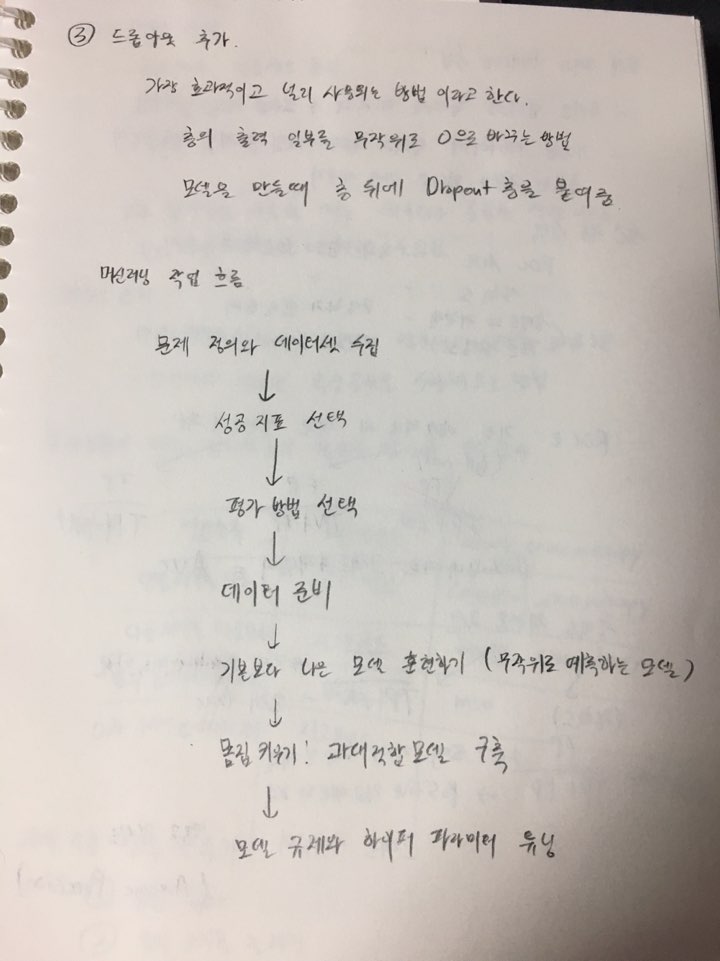 ③ 드롭아웃 추가.
가장 효과적이고 널리 사용되는 방법 이라고 한다.
층의 출력 일부를 무작위로 0으로 바꾸는 방법
모델을 만들때 층 뒤에 Dropout 층을 붙여줌.
머신러닝 작업 흐름
문제 정의와 데이터셋 수집
↓
성공 지표 선택
↓
평가 방법 선택
↓
데이터 준비
↓
기본보다 나은 모델 훈련하기 (무작위로 예측하는 모델)
↓
몸집 키우기! 과대적합 모델 구축
↓
모델 규제와 하이퍼 파라미터 튜닝